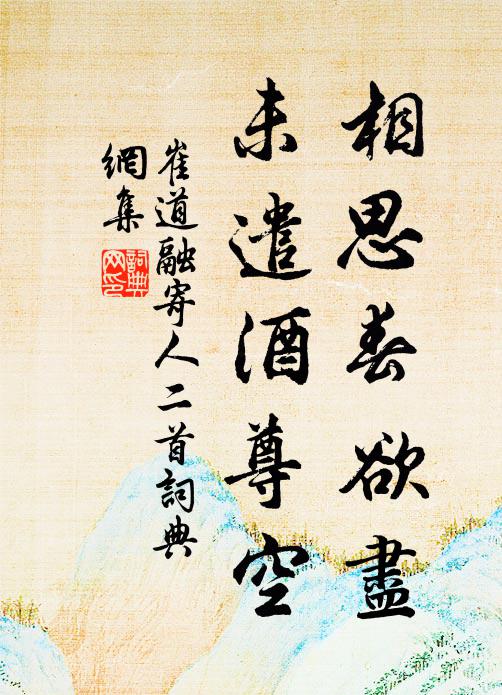 相思春欲盡
未遣酒尊空
崔道融寄人二首詞典
網集
詞典
网印